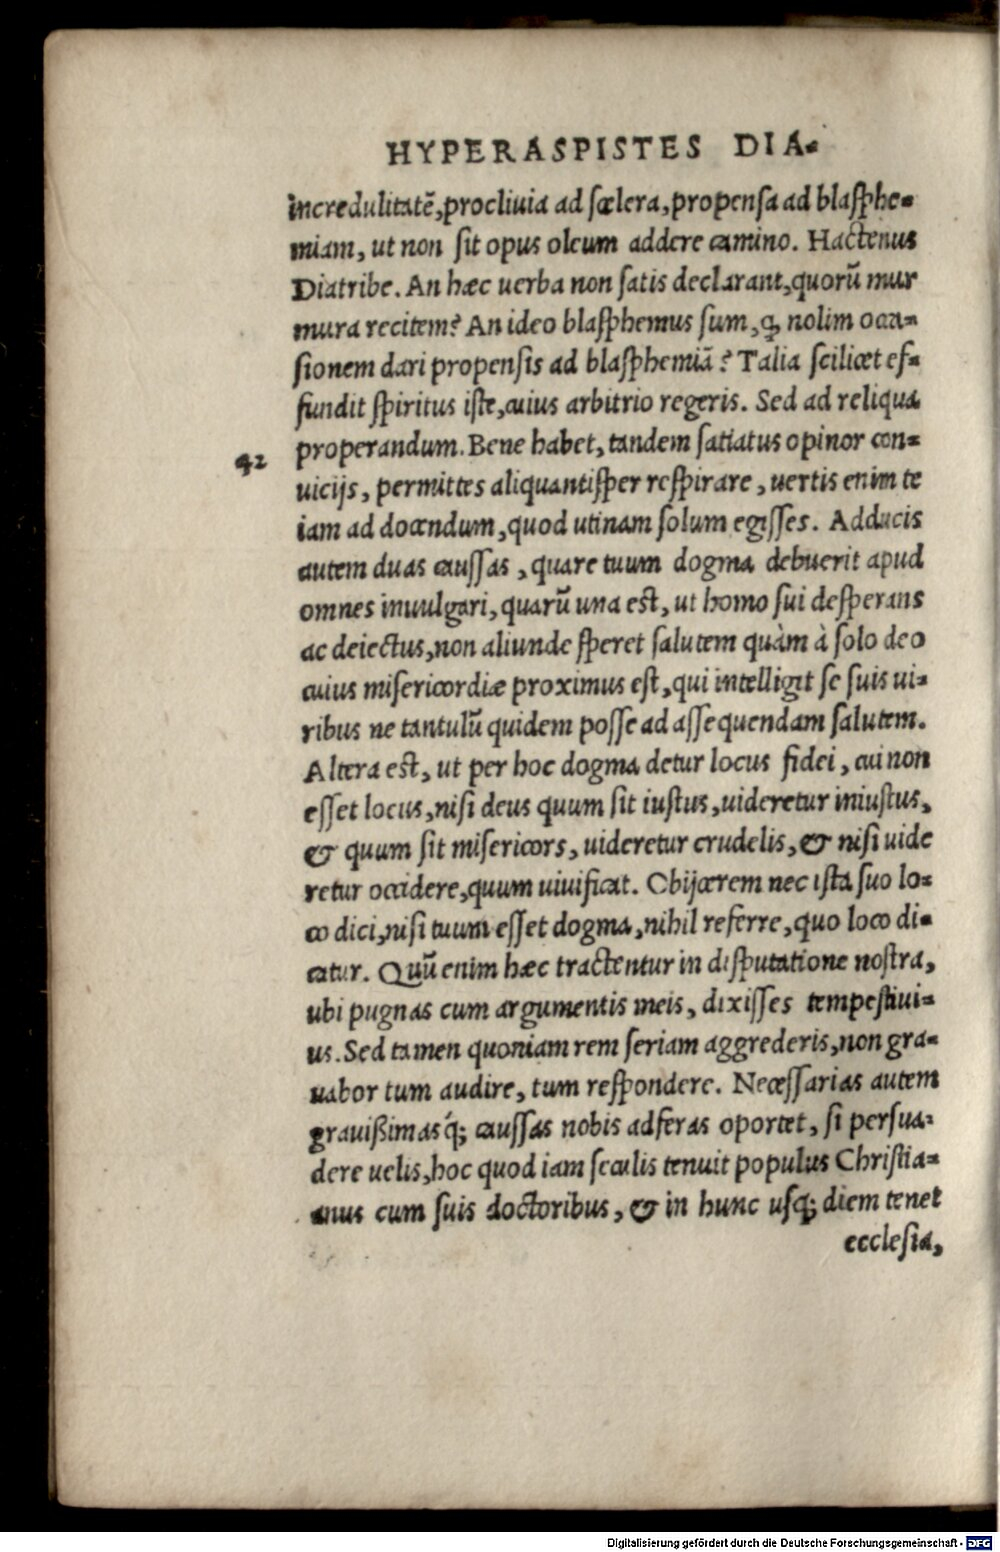 HYPERASPISTES DIA-
incredulitatẽ, procliuia ad scelera, propensa ad blasphe-
miam, ut non sit opus oleum addere camino. Hactenus
Diatribe. An hæc uerba non satis declarant, quorũ mur
mura recitem? An ideo blasphemus sum, ꝙ nolim occa-
sionem dari propensis ad blasphemiã? Talia scilicet ef-
fundit spiritus iste, cuius arbitrio regeris. Sed ad reliqua
properandum. Bene habet, tandem satiatus opinor con-
42
uicijs, permittes aliquantisper respirare, uertis enim te
iam ad docendum, quod utinam solum egisses. Adducis
autem duas caussas, quare tuum dogma debuerit apud
omnes inuulgari, quarũ una est, ut homo sui desperans
ac deiectus, non aliunde speret salutem quàm à solo deo
cuius misericordiæ proximus est, qui intelligit se suis ui-
ribus ne tantulũ quidem posse ad assequendam salutem.
Altera est, ut per hoc dogma detur locus fidei, cui non
esset locus, nisi deus quum sit iustus, uideretur iniustus,
& quum sit misericors, uideretur crudelis, & nisi uide
retur occidere, quum uiuificat. Obijcerem nec ista suo lo-
co dici, nisi tuum esset dogma, nihil referre, quo loco di-
catur. Quũ enim hæc tractentur in disputatione nostra,
ubi pugnas cum argumentis meis, dixisses tempestiui-
us. Sed tamen quoniam rem seriam aggrederis, non gra-
uabor tum audire, tum respondere. Necessarias autem
grauißimasq́; caussas nobis adferas oportet, si persua-
dere uelis, hoc quod iam seculis tenuit populus Christia-
anus cum suis doctoribus, & in hunc usq; diem tenet
ecclesia,
Digitalisierung gefördert durch die Deutsche Forschungsgemeinschaft - DFG